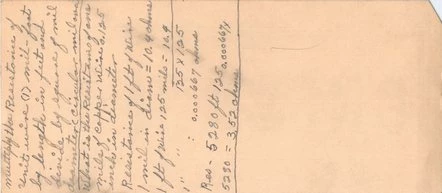 Multiply the Resistance of
unit wire (1 mil-foot
by length in feet and
divide by square of mil
diameter (circular mil area
What is the Resistance of one
mile of copper wire 0.125
inches in diameter
Resistance of 1 ft of wire
1 mil in diam = 10.4 ohms
1 ft of Wire 125 mils = 10.4
125 x 125
1 " " : 0.000667 ohms
Res - 5280 ft 125 0.000667 x
5280 = 3.52 ohms